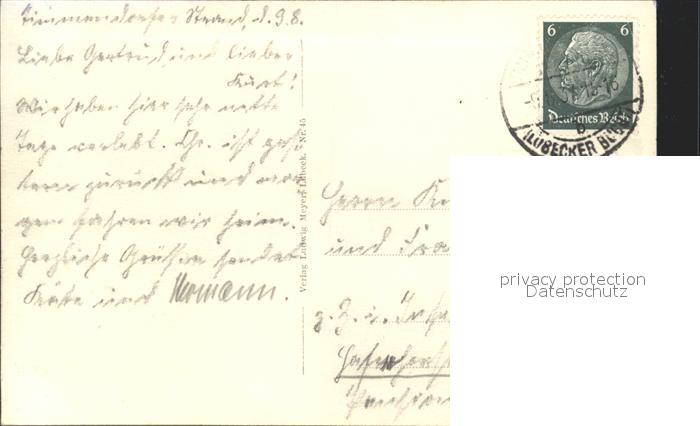 Timmendorfer Strand, d. 9.8.
Liebe Gertrud, und lieber
Kurt!
Wir haben hier sehr nette
Tage verlebt. Chr. ist ges-
tern zurück und mor-
gen fahren wir heim.
Herzliche Grüße sendet
Käte und Hermann.
Verlag Ludwig Meyer, Lübeck. Nr. 45
6 6
Deutsches Reich
(LÜBECKER BUCHT)
Herrn
und Frau
z. Z.
Pension
privacy protection
Datenschutz